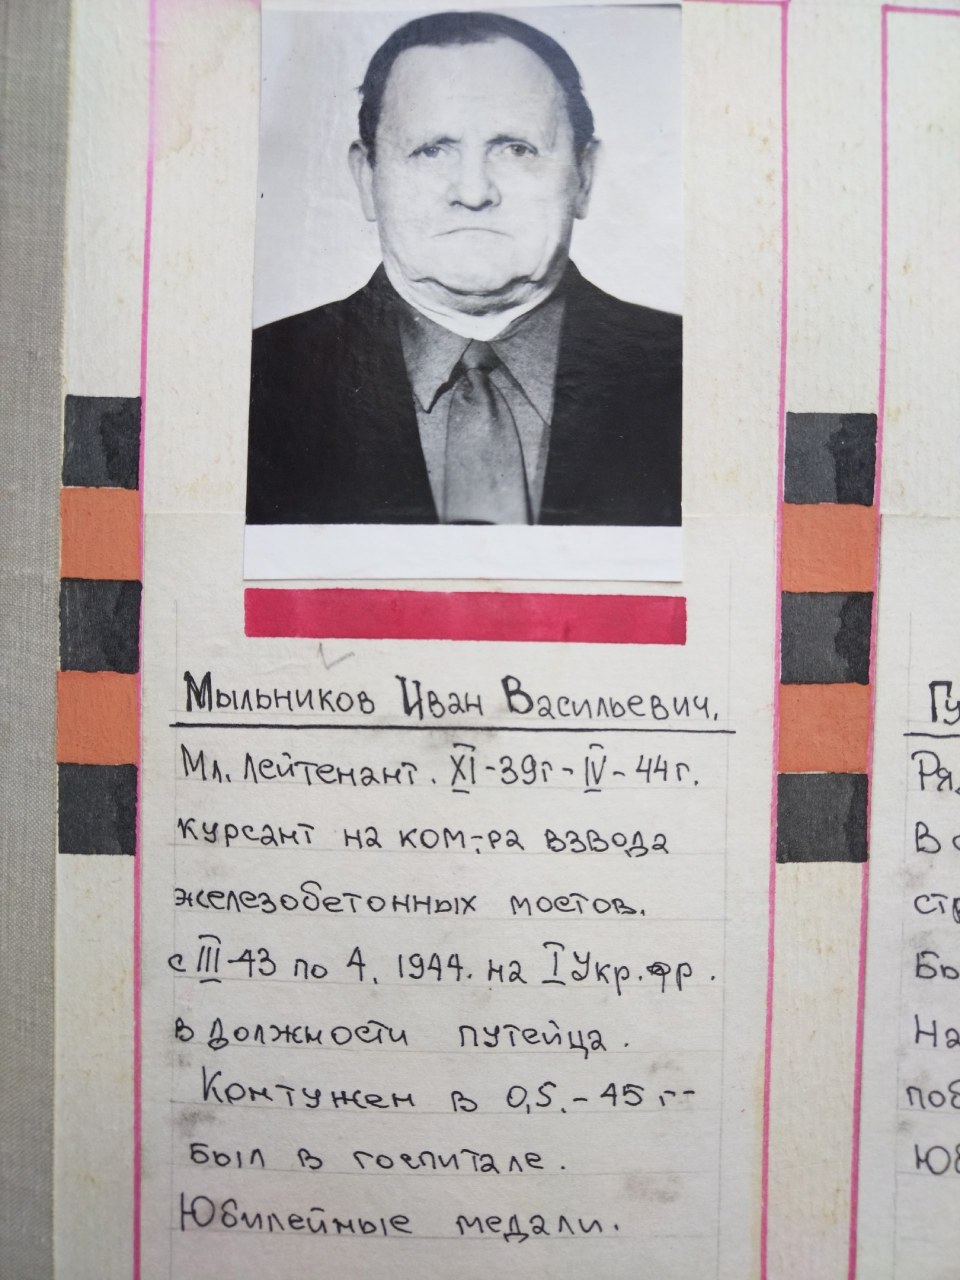 Мыльников Иван Васильевич.
Мл. лейтенант. XI-39г-IV-44г.
курсант на ком-ра взвода
железобетонных мостов.
с III-43 по 4. 1944. на I Укр. фр.
в должности путейца.
Контужен в 0,5.-45 г-
был в госпитале.
Юбилейные медали.
Гу
Ряд
В с
стр
Бы
На
поб
Юб